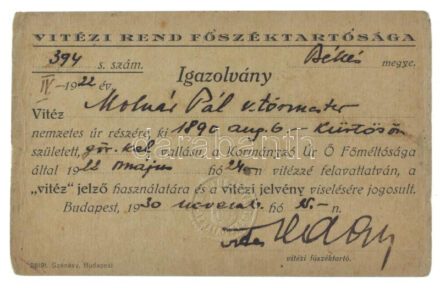 VITÉZI REND FŐSZÉKTARTÓSÁGA
394 s. szám. Békés megye.
IV-1922 év
Igazolvány
Vitéz Molnár Pál v. törmester
nemzetes úr részére, ki 1890 aug. 6. Kürtösön
született, gör. kel. vallású, a Kormányzó Úr Ő Főméltósága
által 1922 május hó 24-n vitézzé felavattatván, a
„vitéz” jelző használatára és a vitézi jelvény viselésére jogosult.
Budapest, 1930 november hó 15.-n.
vitéz
vitézi főszéktartó.
Budapest